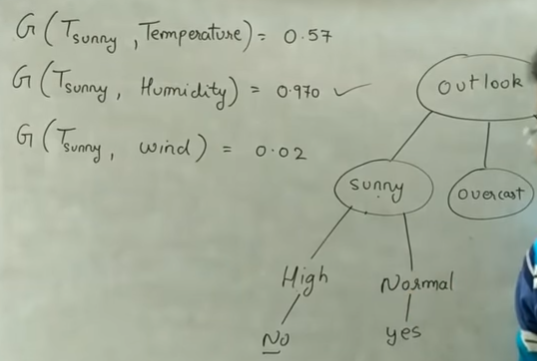 G(T sunny, Temperature) = 0.57
G(T sunny, Humidity) = 0.970 ✓
G(T sunny, wind) = 0.02
Outlook
sunny
Overcast
High
Normal
No
yes